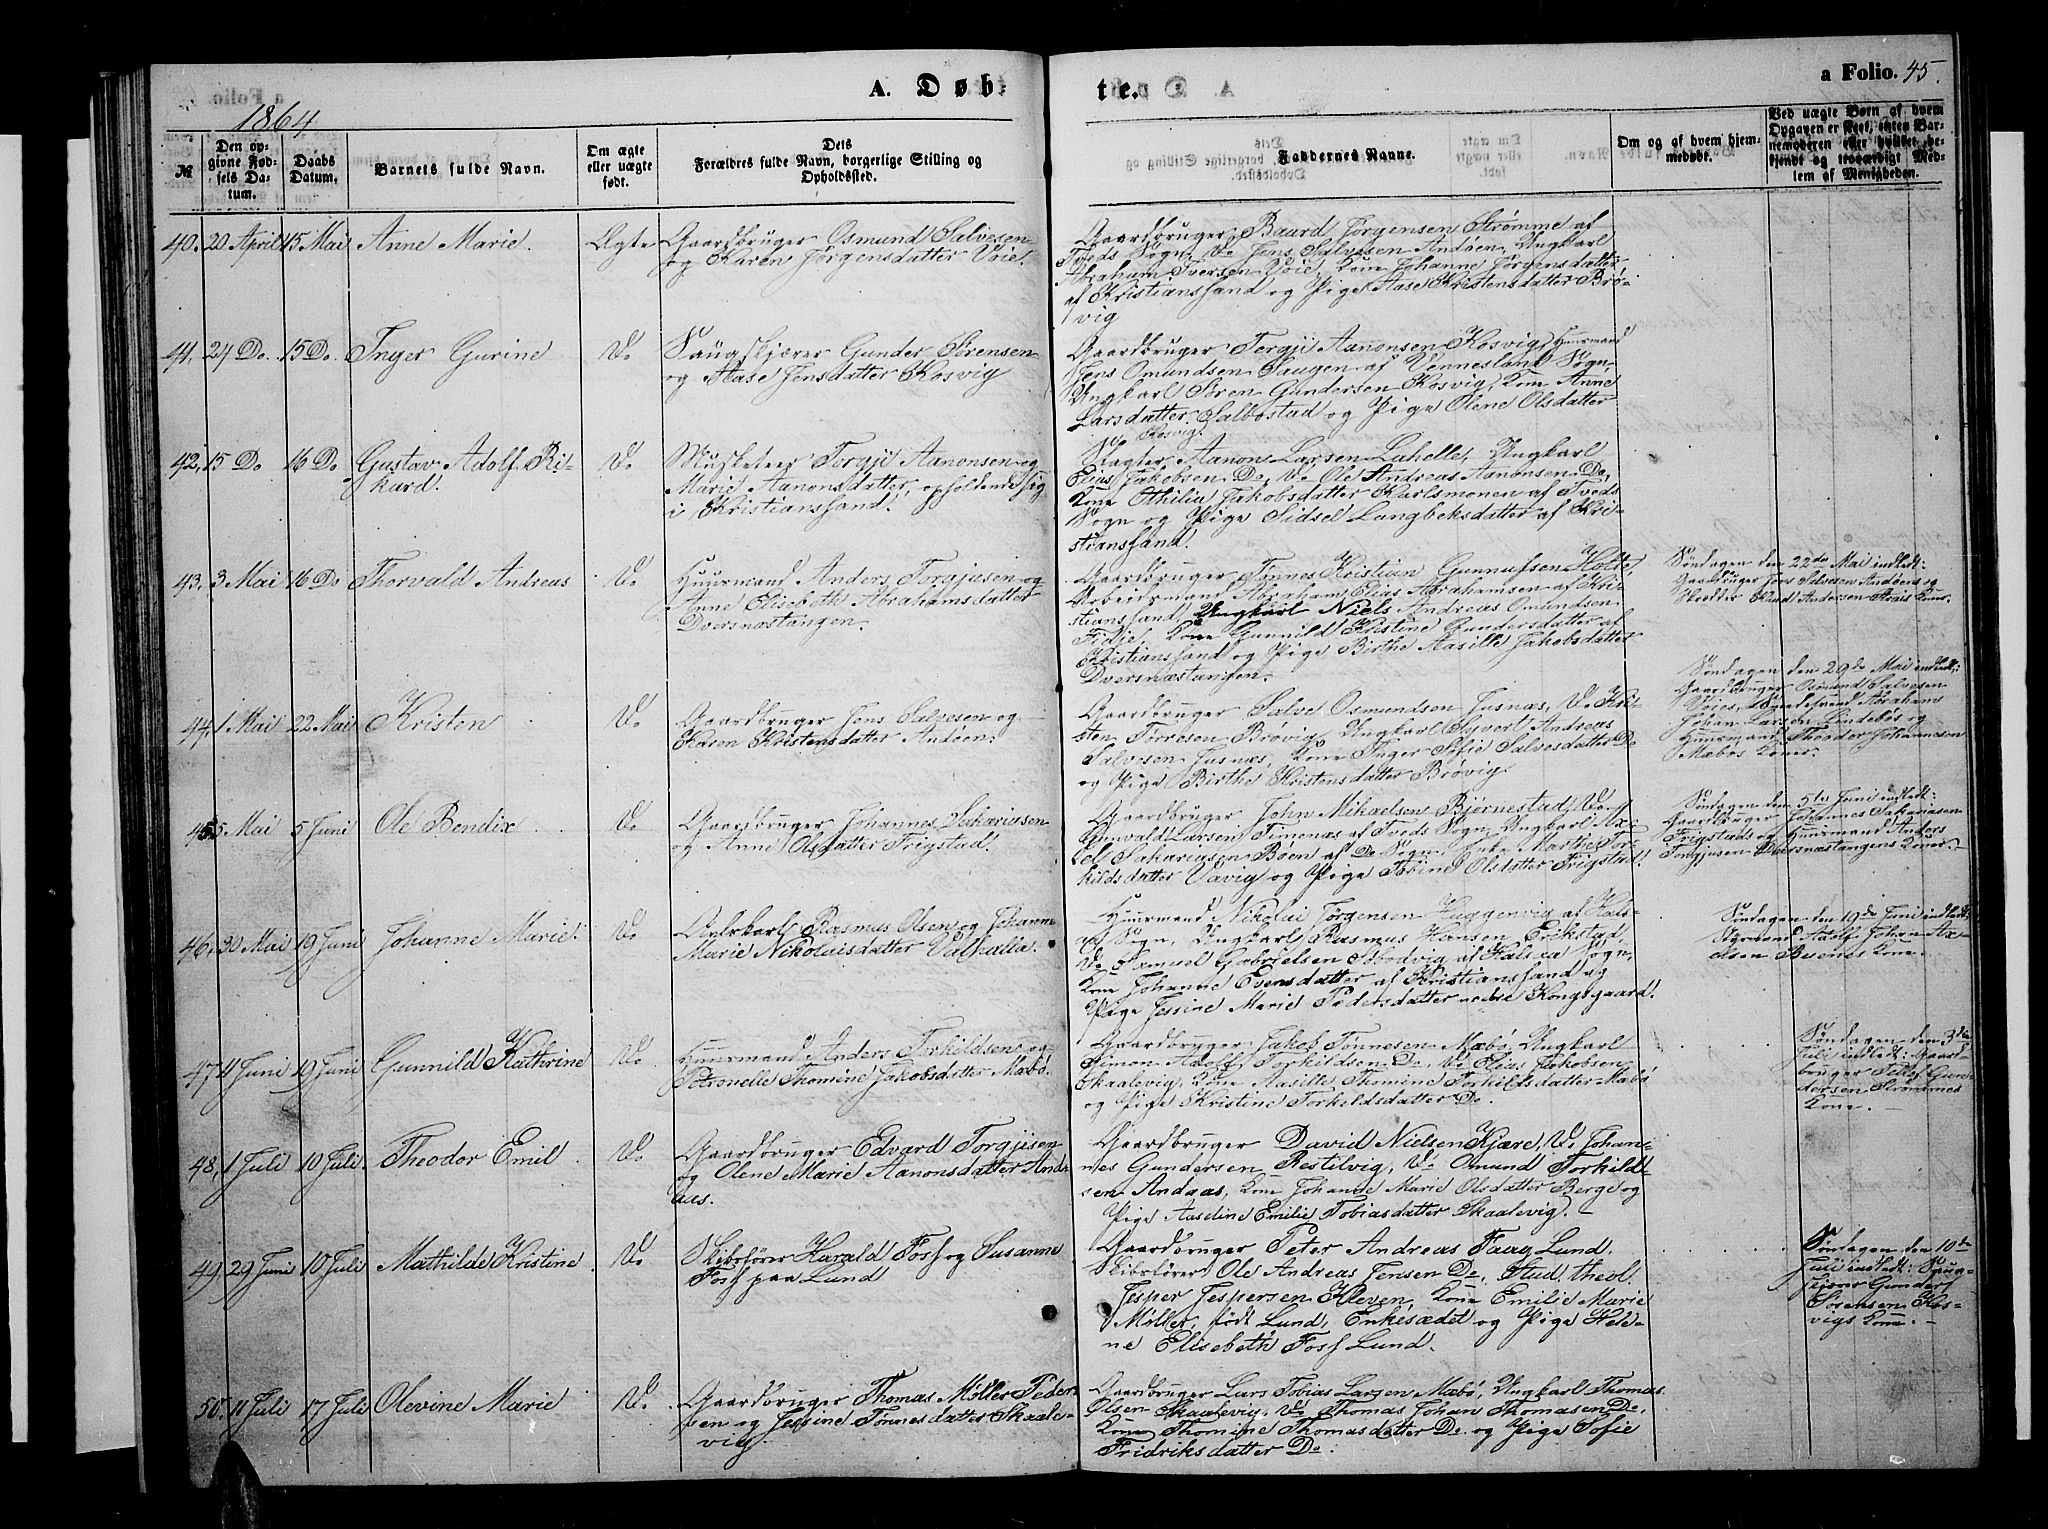 A. Døb:
te.
a Folio. 45.
1864
№
Den opgivne Fødsels Datum.
Daabs Datum.
Barnets fulde Navn.
Om ægte eller uægte født.
Dets Forældres fulde Navn, borgerlige Stilling og Opholdssted.
Faddernes Navne.
Om og af hvem hjemmedøbt.
Ved uægte Børn af hvem Opgaven er skeet, enten Barnemoderen eller hvilket bekjendt og troværdigt Medlem af Menigheden.
40. 20 April 15 Mai Anne Marie. Ægte Gaardbruger Osmund Salvesen
og Karen Jørgensdatter Voie.
Gaardbruger Baard Jørgensen Strømme af
Tveds Sogn, Do Jens Salvesen Andøen, Ungkarl
Abraham Iversen Voie, Kone Johanne Jørgensdatter
af Kristianssand og Pige Aase Kristensdatter Brø-
vig
41. 24 Do. 15 Do. Inger Gurine Do. Saugskjærer Gunder Sørensen
og Aase Jensdatter Kosvig
Gaardbruger Tergji Aanonsen Kosvig, Huusmand
Jens Omundsen Haugen af Vennesland Sogn,
Ungkarl Søren Gundersen Kosvig, Kone Anne
Larsdatter Salbostad og Pige Olene Olsdatter
Kosvig.
42. 15 Do 16 Do Gustav Adolf Ri-
kard. Do. Musketeer Torgji Aanonsen og
Marie Aanonsdatter, opholdende sig
i Kristianssand.
Slagter Aanon Larsen Lahelle, Ungkarl
Elias Jakobsen Do, Do Ole Andreas Aanonsen Do,
Kone Othilia Jakobsdatter Karlsmonen af Tveds
Sogn og Pige Sidsel Langbeksdatter af Kri-
stianssand.
43. 3 Mai 16 Do Thorvald Andreas Do. Huusmand Anders Torgjusen og
Anne Elisebeth Abrahamsdatter
Dversnæstangen.
Gaardbruger Tønnes Kristian Gunnufsen Holte,
Arbeidsmand Abraham Elias Abrahamsen af Kri-
stianssand, Ungkarl Niels Andreas Omundsen
Fidje, Kone Gunnild Kristine Gundersdatter af
Kristianssand og Pige Birthe Aasille Jakobsdatter
Dversnæstangen.
Søndagen den 22de Mai indledt:
Gaardbruger Jens Salvesen Andøens og
Skredder Knud Andersen Kone.
44. 1 Mai 22 Mai Kristen Do. Gaardbruger Jens Salvesen og
Karen Kristensdatter Andøen.
Gaardbruger Salve Osmundsen Jusnæs, Do Kri-
sten Tørresen Brøvig, Ungkarl Syvert Andreas
Salvesen Jusnæs, Kone Inger Sofie Salvesdatter Do
og Pige Birthe Kristensdatter Brøvig.
Søndagen den 29de Mai indledt:
Gaardbruger Osmund Salvesen
Voies, Abrahams
Johan Larsen Lindebøs og
Huusmand Theodor Johannesen
Mæbøs Koner.
45. 5 Mai 5 Juni Ole Bendix Do. Gaardbruger Johannes Sakariasen
og Anne Olsdatter Frigstad.
Gaardbruger John Mikaelsen Bjørnestad, Do.
Gunvald Larsen Timenæs af Tveds Sogn, Ungkarl Axi-
sel Sakariasen Bøen af Do Sogn, Enke Marthe Tor-
kildsdatter Vavig og Pige Tobine Olsdatter Frigstad.
Søndagen den 5te Juni indledt:
Gaardbruger Johannes Sakariasen
Frigstads og Huusmand Anders
Torgjusen Dversnæstangens Koner.
46. 30 Mai 19 Juni Johanne Marie. Do. Rasmus Olsen og Johanne
Marie Nikolaisdatter Valhalla.
Huusmand Nikolai Jørgensen Huggenvig af Hals-
aa Sogn, Ungkarl Rasmus Hansen Erikstad,
Do Samuel Gabrielsen af Halsaa Sogn,
Kone Johanne Evensdatter af Kristianssand og
Pige Jessine Marie Pedersdatter nedre Kongsgaard.
Søndagen den 19de Juni indledt:
Styrmand Adolf Johan Ax-
elsen Buenes Kone.
47. 4 Juni 19 Juni Gunnild Kathrine Do. Huusmand Anders Torkildsen og
Petronelle Thomine Jakobsdatter Mæbø.
Gaardbruger Jakob Tønnesen Mæbø, Ungkarl
Simon Adolf Torkildsen Do., Do Elias Jakobsen
Skaalevig, Kone Aasille Thomine Torkildsdatter Mæbø
og Pige Kristine Torkeldsdatter Do.
Søndagen den 3die
Juli indledt: Gaard-
bruger Gun-
dersen Strømmes
Kone.
48. 1 Juli 10 Juli Theodor Emil Do. Gaardbruger Edvard Torgjusen
og Olene Marie Aanonsdatter And-
aas.
Gaardbruger David Nielsen Kjære, Do. Johan-
nes Gundersen Restilvig, Do. Omund Torkild-
sen Andaas, Kone Johanne Marie Olsdatter Berge og
Pige Aaseline Emilie Tobiasdatter Skaalevig.
49. 29 Juni 10 Juli Mathilde Kristine. Do. Skibsfører Harald Foss og Susanne
Foss paa Lund
Gaardbruger Peter Andreas Faag Lund,
Skibsfører Ole Andreas Jensen Do., Stud. theol.
Jesper Jespersen Kleven, Kone Emilie Marie
Møller, født Lund, Enkesædet og Pige Hele-
ne Elisebeth Foss Lund.
Søndagen den 10de
Juli indledt: Saug-
skjærer Gunder
Sørensen Kos-
vigs Kone.
50. 11 Juli 17 Juli Olevine Marie Do. Gaardbruger Thomas Møller Peder-
sen og Jessine Tønnesdatter Skaale-
vig.
Gaardbruger Lars Tobias Larsen Mæbø, Ungkarl Thomas
Olsen Skaalevig, Do Thomas Johan Thomasen Do,
Kone Thomine Thomasdatter Do. og Pige Sofie
Fridriksdatter Do.